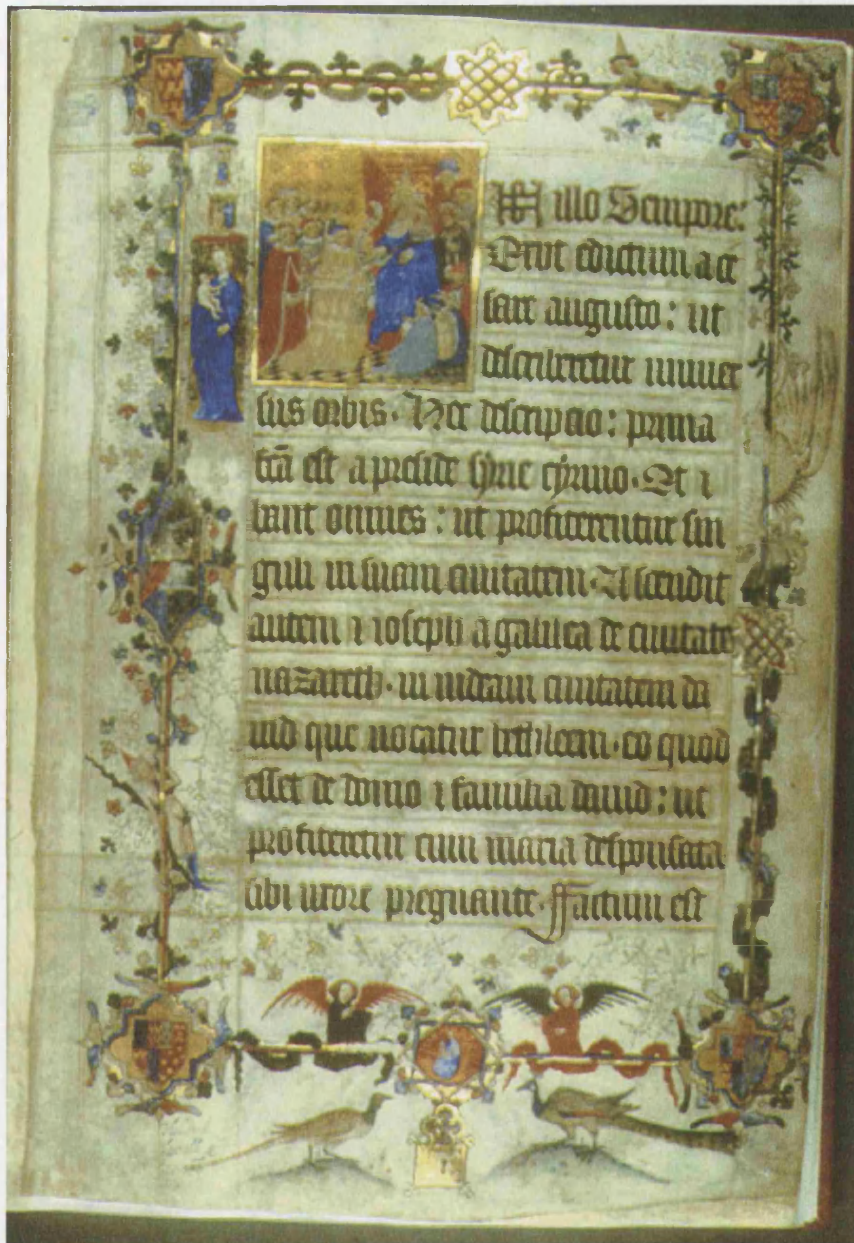 In illo Tempore:
Exiit edictum a ce
sare augusto: ut
describeretur univer
sus orbis. Hec descripcio: prima
fcā est a preside syrie cyrino. Et i
bant omnes: ut profiterentur sin
guli in suam civitatem. Ascendit
autem ⁊ ioseph a galilea de civitate
nazareth. in iudeam civitatem da
uid que vocatur bethleem. eo quod
esset de domo ⁊ familia david: ut
profiteretur cum maria desponsata
sibi uxore pregnante. ffactum est